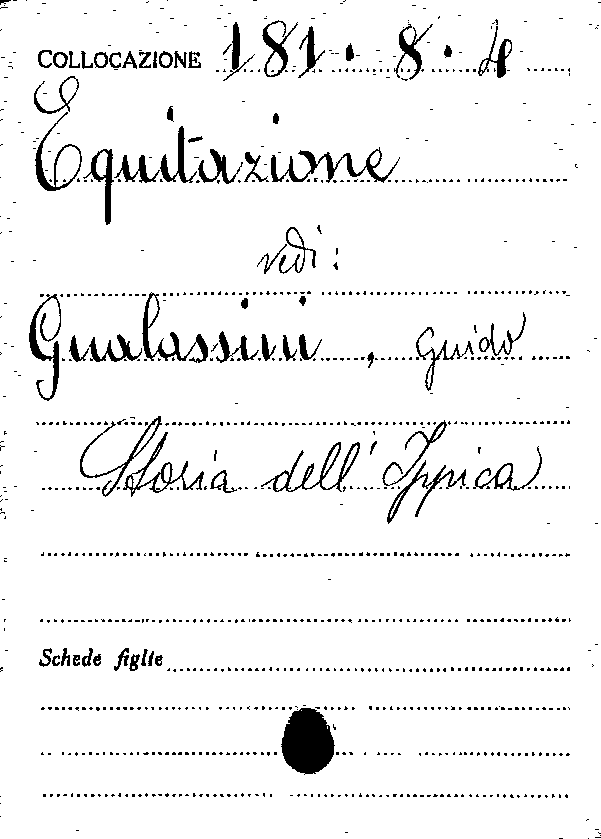 COLLOCAZIONE 181. 8. 4
Equitazione
vedi:
Gualassini, Guido
Storia dell'Ippica
Schede figlie